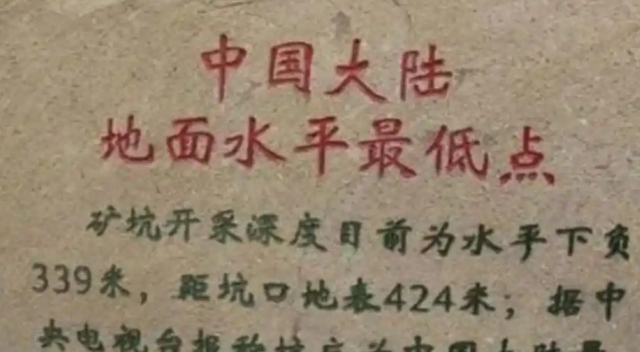 中国大陆
地面水平最低点
矿坑开采深度目前为水平下负
339米，距坑口地表424米；据中
央电视台报称坑底为中国大陆最